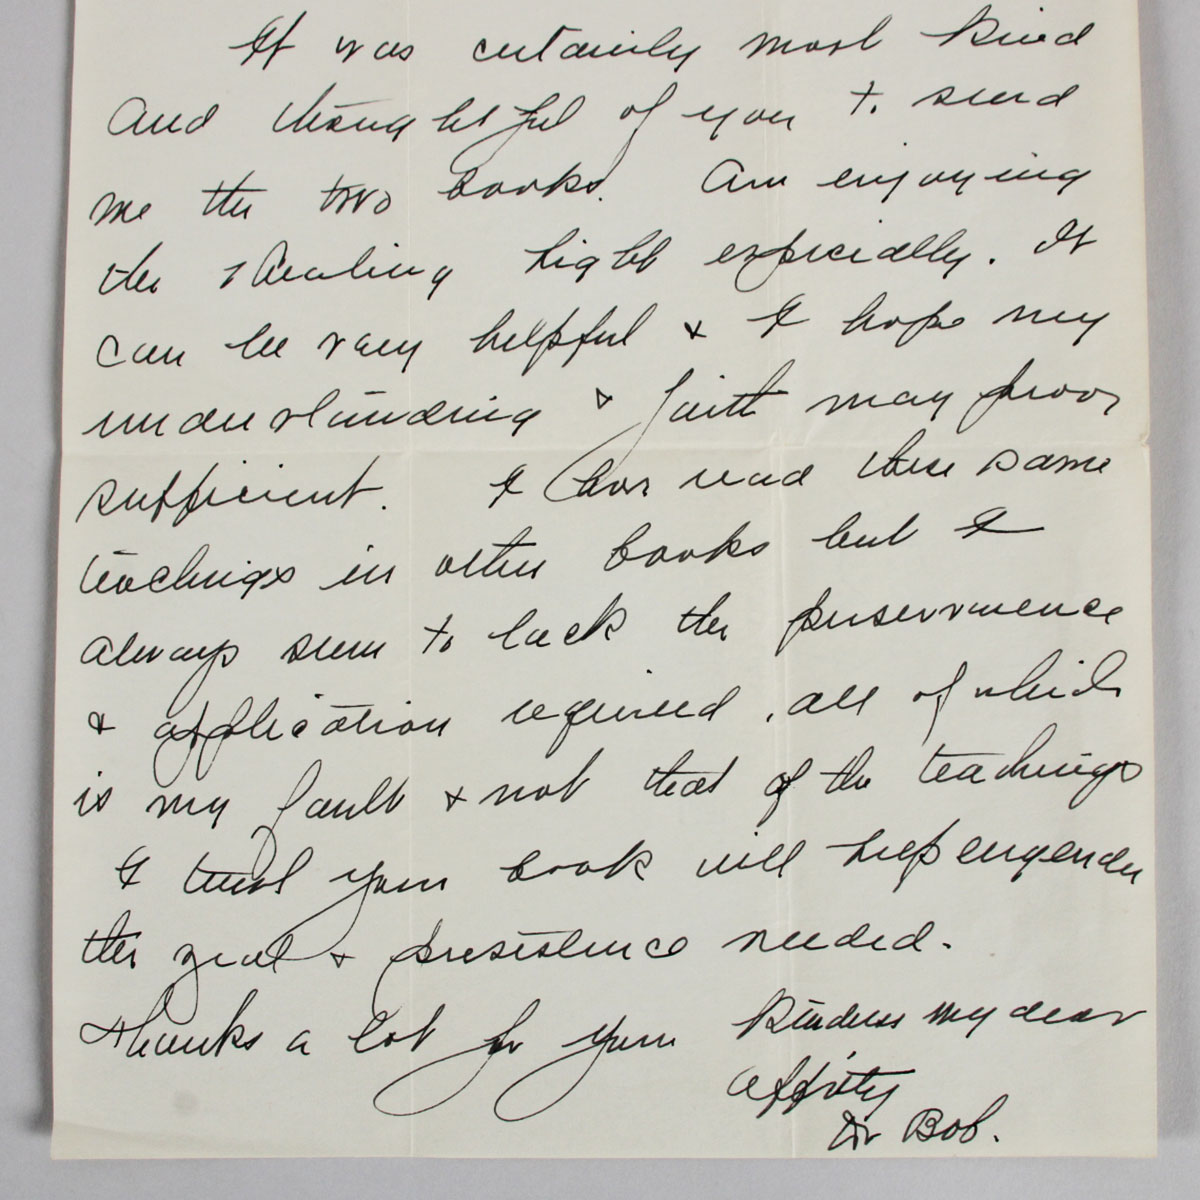 It was certainly most kind
and thoughtful of you to send
me the two books. Am enjoying
the Healing Light especially. It
can be very helpful & I hope my
understanding & faith may prove
sufficient. I have read these same
teachings in other books but I
always seem to lack the perserverence
& application required, all of which
is my fault & not that of the teachings
I trust your book will help engender
the zeal & presistence needed.
Thanks a lot for your kindness my dear
Dr Bob.